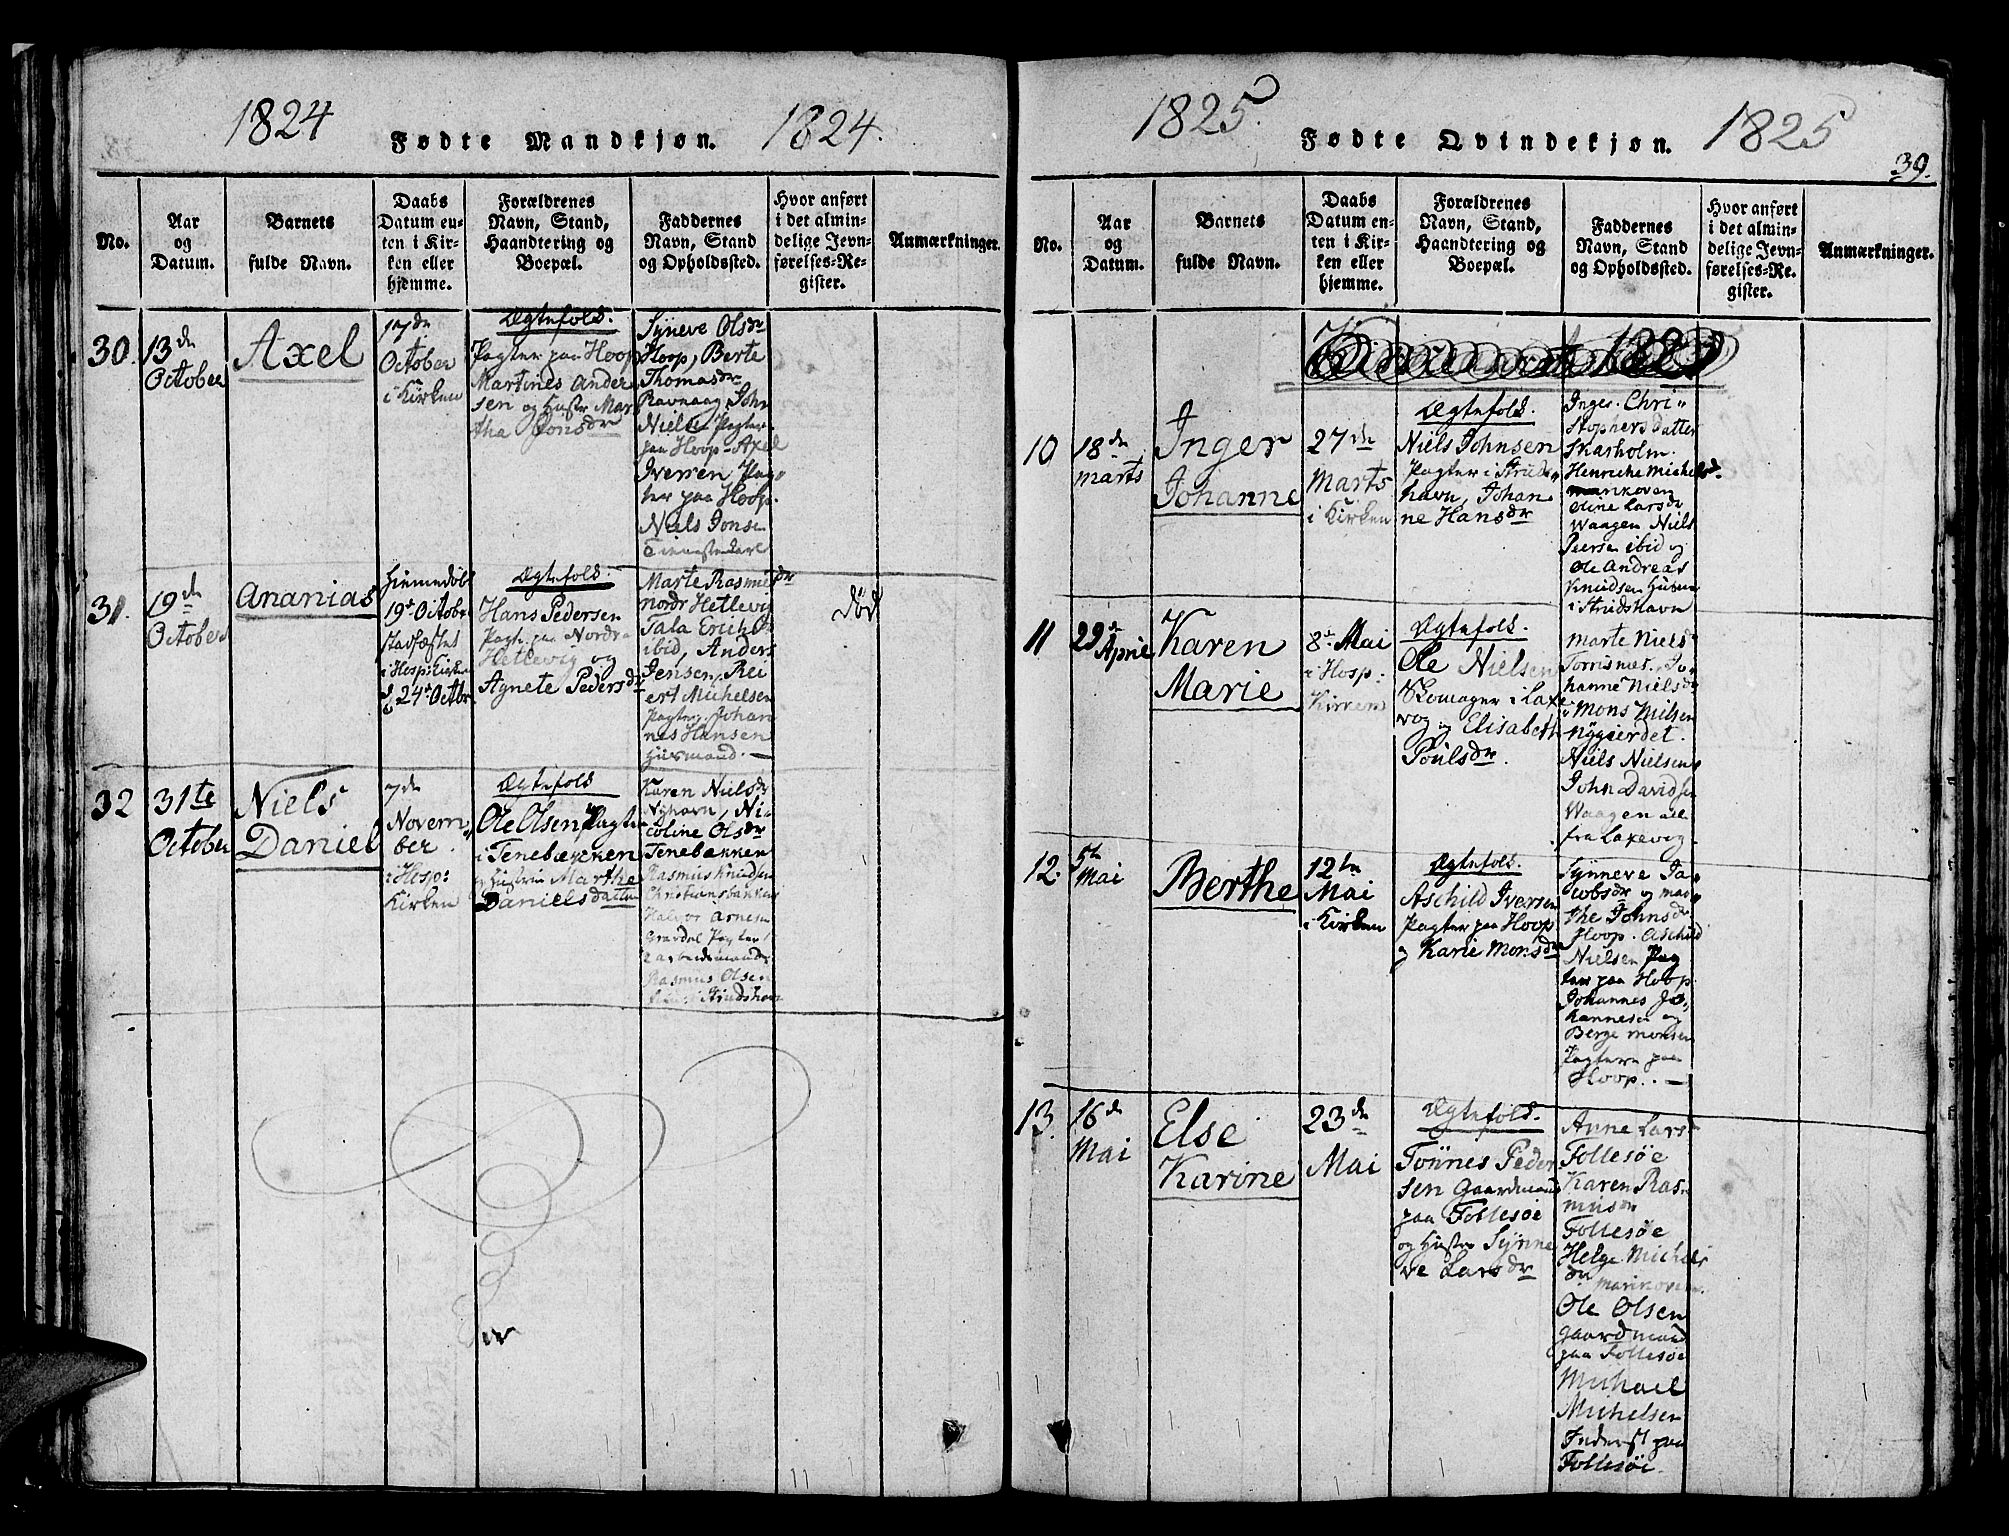 1824
Fødte Mandkjøn.
1824.
No.
Aar
og
Datum.
Barnets
fulde Navn.
Daabs
Datum en-
ten i Kir-
ken eller
hjemme.
Forældrenes
Navn, Stand,
Haandtering og
Boepæl.
Faddernes
Navn, Stand
og Opholdssted.
Hvor anført
i det almin-
delige Jevn-
førelses-Re-
gister.
Anmærkninger.
30.
13de
October
Axel
17de
October
i Kirken
Ægtefolk.
Pagter paa Hoop
Martines Ander
sen og Hustr Mar
tha Jonsdr
Syneve Olsdr
Hoop, Berte
Thomasdr
Ravnaag John
Nielse Pagter
paa Hoop - Axel
Iverren Pag-
ter paa Hoop.
Niels Jonse
Tienestekarl
31.
19de
October
Ananias
Hiemmedøbt
19de October
stadfæstet
i Hosp: Kirken
d 24de Octbr
Ægtefolk.
Hans Pedersen
Pagt. paa Nordre
Hetlevig og
Agnete Pedersdr
Marte Rasmusdr
nordr Hetlevig
Tala Erichsdr
ibid, Anders
Jensen, Rei
ert Michelsen
Pagter. Johan
nes Hansen
Huusmand. —
død
32
31te
October
Niels
Daniel
7de
Novem-
ber.
i Hosp:
Kirken
Ægtefolk
Ole Olsen Pagter
i Tenebækken
og Hustru Marthe
Danielsdatter
Karen Nielsdr
Nyhavn, Ni-
coline Olsdr
Tenebækken
Rasmus Knudsen
Christiansbakken
Halvor Arnesen
Pagter
2 arbeidsmænd
Rasmus Olsen
i Strudshavn
1825.
Fødte Qvindekjøn.
1825
39.
No.
Aar
og
Datum.
Barnets
fulde Navn.
Daabs
Datum en-
ten i Kir-
ken eller
hjemme.
Forældrenes
Navn, Stand,
Haandtering og
Boepæl.
Faddernes
Navn, Stand
og Opholdssted.
Hvor anført
i det almin-
delige Jevn-
førelses-Re-
gister.
Anmærkninger.
10
18de
marts
Inger
Johanne
27de
Marts
i Kirken
Ægtefolk.
Niels Johnsen
Pagter i Struds-
havn, Johan
ne Hansdr
Inger Chri-
stophersdatter
Skarholm.
Henriche Michelsd.
marikoven
Oline Larsdr
Waagen Niels
Peersen ibid og
Ole Andreas
Knudsen Huusm
i Strudshavn
11
29de Aprie
Karen
Marie
8de Mai
i Hosp:
Kirken
Ægtefolk.
Ole Nielsen
Skomager i Laxe
vog og Elisabeth
Poulsdr
Marte Nielsd
Torrisnæt. Jo-
hanne Nielsdr
Mons Nilsen
Nygierdet.
Niels Nielsen
John Davidsen
Waagen alle
fra Laxevog.
12.
5te
Mai
Berthe
12te
Mai
i Kirken
Ægtefolk.
Aschild Iversen
Pagter paa Hoop
og Karie Monsdr
Synneve Ja-
cobsdr og mar-
the Johnsdr
Hoop. Aschild
Nielsen Pag
ter paa Hoop.
Johannes Jo-
hannesen og
Berge monsen
Pagtere paa
Hoop. —
13.
16de
Mai
Else
Karine
23de
Mai
Ægtefolk.
Tönnes Peder
sen Gaardmand
paa Follesøe
og Hustr Synne
ve Larsdr
Anne Lars
Follesøe
Karen Ras-
musdr
Follesøe
Helge Michels
dr Marikoven.
Ole Olsen
gaardmand
paa Follesøe
Michael
Michelsen
Inderst paa
Follesøe.